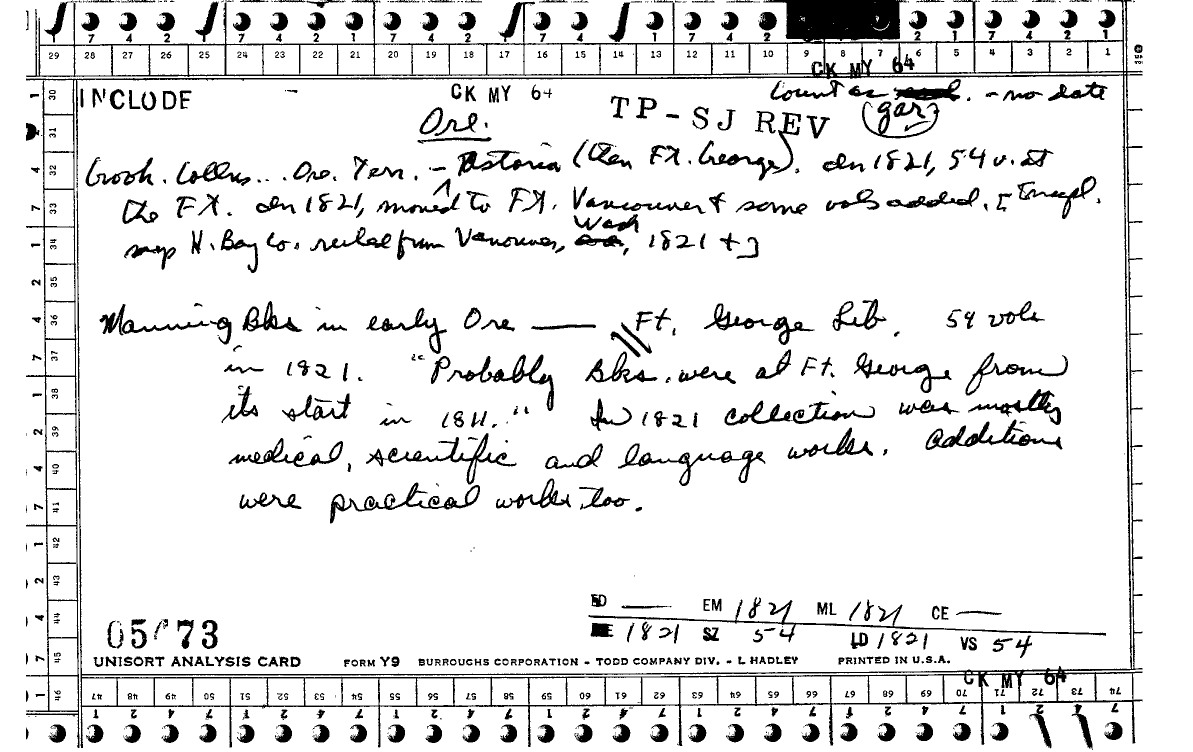 1 7 4 2 1 7 4 2 1 7 4 2 1 7 4 2 1 7 4 2 1 2 1 7 4 2 1
29 28 27 26 25 24 23 22 21 20 19 18 17 16 15 14 13 12 11 10 9 8 7 6 5 4 3 2 1
CK MY 64
INCLUDE – CK MY 64 Count as . - no date
Ore. TP-SJ REV (gar)
Ore. Terr. - Astoria (then Ft. George). In 1821, 54 v. at
the Ft. In 1821, moved to Ft. Vancouver & some vols added. [
says H. Bay Co. from Vancouver, Wash, 1821 + ]
Manning Bks in early Ore — Ft. George Lib. 54 vols
in 1821. "Probably Bks. were at Ft. George from
its start in 1811." In 1821 collection was mostly
medical, scientific and language works. Additions
were practical works, too.
ED — EM 1821 ML 1821 CE —
1821 SZ 54 LD 1821 VS 54
05 73
UNISORT ANALYSIS CARD FORM Y9 BURROUGHS CORPORATION – TODD COMPANY DIV. – L HADLEY PRINTED IN U.S.A.
CK MY 64
46 47 48 49 50 51 52 53 54 55 56 57 58 59 60 61 62 63 64 65 66 67 68 69 70 71 72 73 74